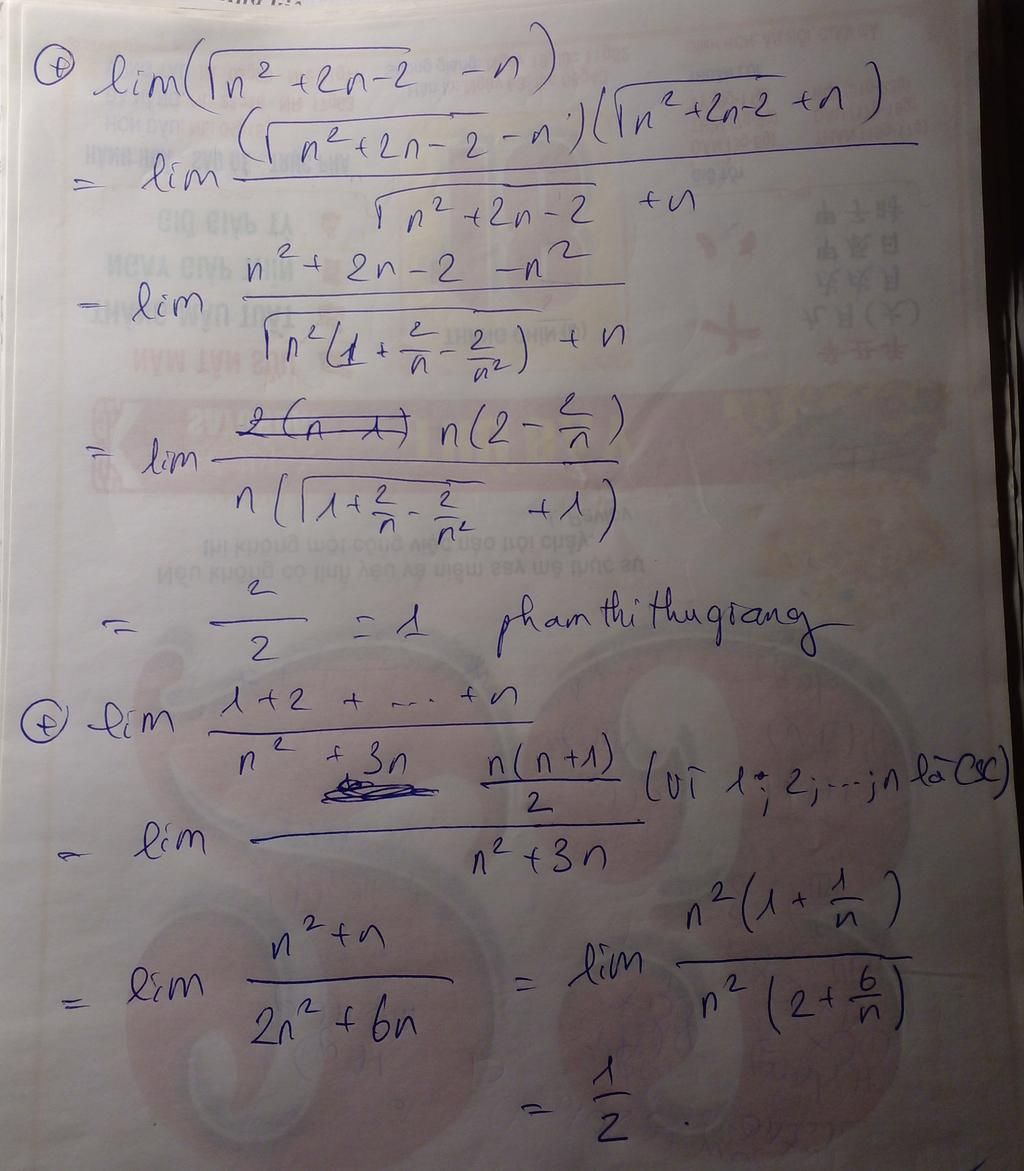 ⊕ lim(√(n² + 2n - 2) - n)
= lim ((√(n² + 2n - 2) - n)(√(n² + 2n - 2) + n)) / (√(n² + 2n - 2) + n)
= lim (n² + 2n - 2 - n²) / (√(n²(1 + 2/n - 2/n²)) + n)
= lim (n(2 - 2/n)) / (n(√(1 + 2/n - 2/n²) + 1))
= 2/2 = 1 phamthithugiang
⊕ lim (1 + 2 + ... + n) / (n² + 3n)
= lim (n(n+1)/2) / (n² + 3n) (vì 1; 2; ...; n là CSC)
= lim (n² + n) / (2n² + 6n) = lim (n²(1 + 1/n)) / (n²(2 + 6/n))
= 1/2.